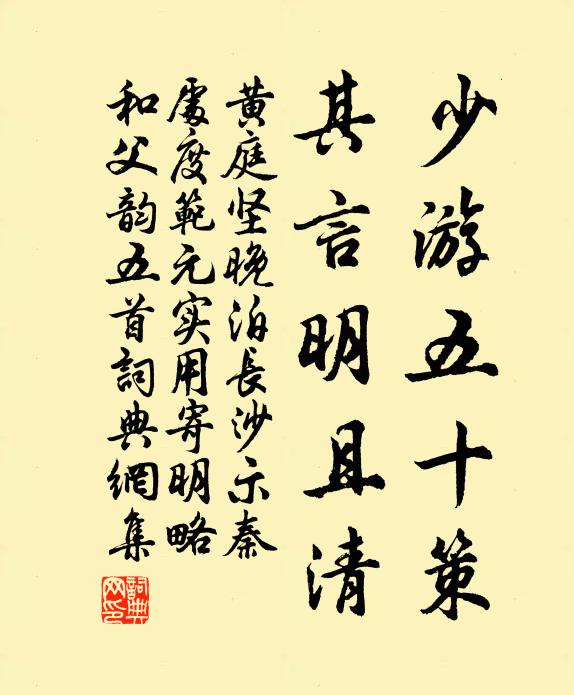 少游五十策
其言明且清
黄庭坚晚泊長沙示秦
處度範元实用寄明略
和父韵五首詞典網集
詞典网印